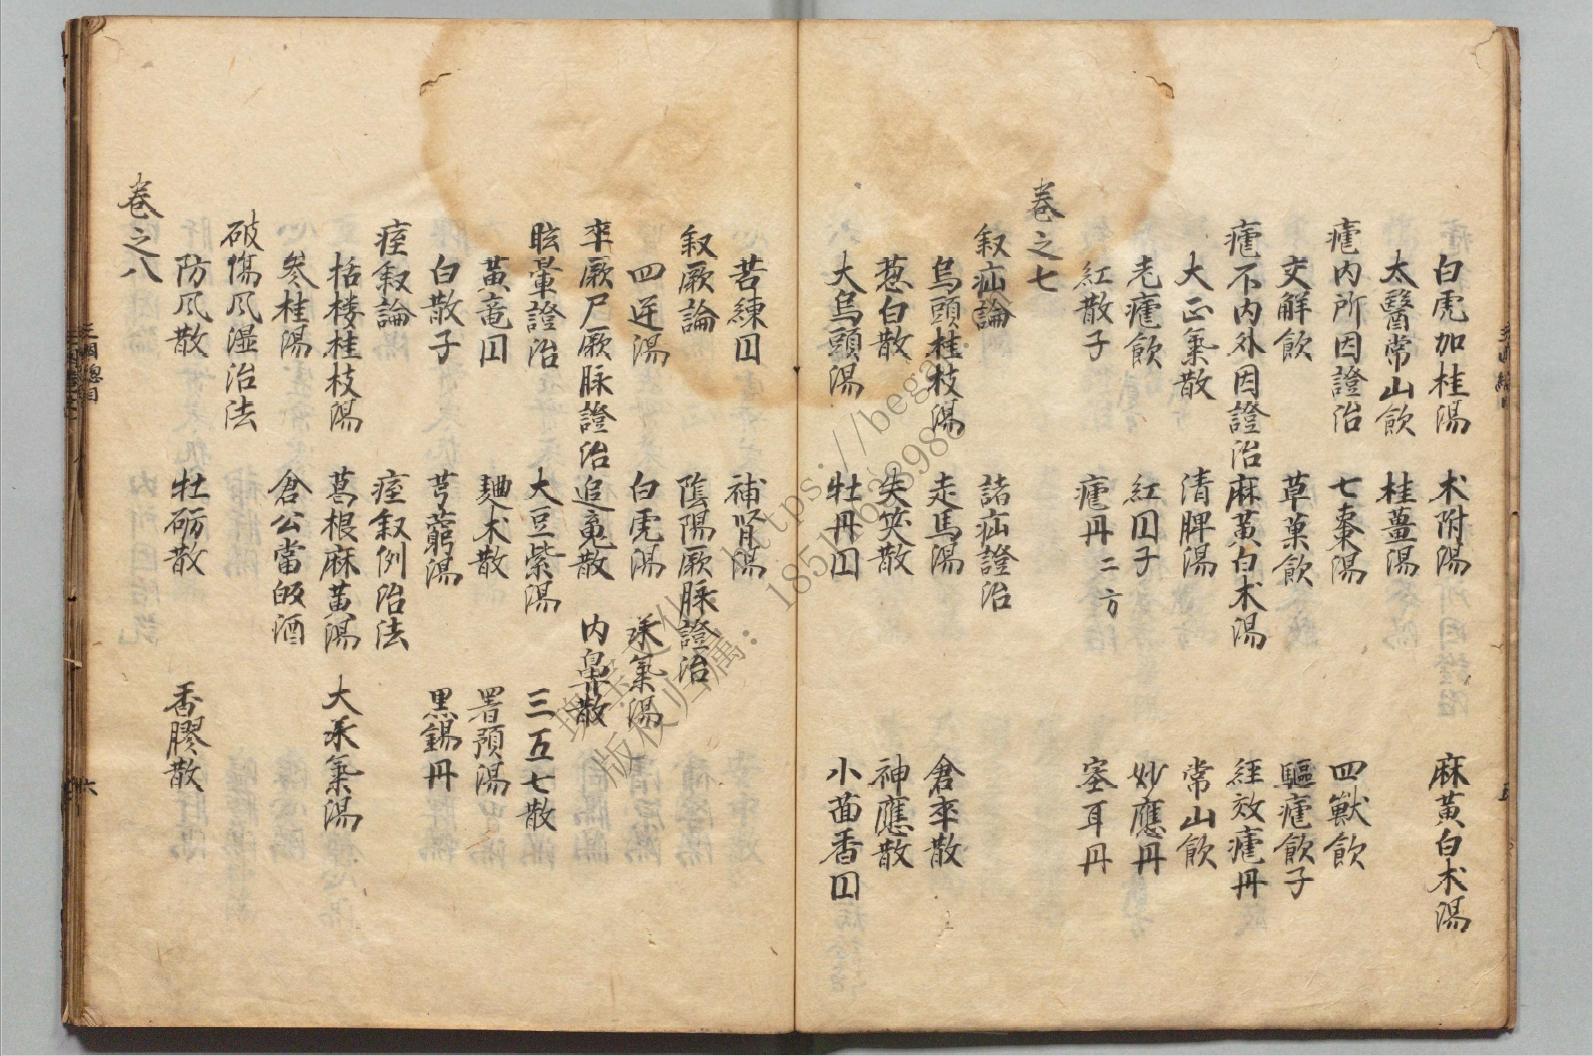 白虎加桂湯 术附湯 麻黃白术湯
太醫常山飲 桂薑湯
瘧內所因證治 七棗湯 四獸飲
交解飲 草菓飲 驅瘧飲子
瘧不內外因證治 麻黃白术湯 經效瘧丹
大正氣散 清脾湯 常山飲
老瘧飲 紅囙子 妙應丹
紅散子 瘧丹 二方 塞耳丹
卷之七
叙疝論 諸疝證治
烏頭桂枝湯 走馬湯 倉卒散
葱白散 失笑散 神應散
大烏頭湯 牡丹囙 小茴香囙
苦練囙 補腎湯
叙厥論 陰陽厥脉證治
四逆湯 白虎湯 承氣湯
卒厥尸厥脉證治 追竜散 內鼻散
眩暈證治 大豆紫湯 三五七散
黃竜囙 麯术散 署預湯
白散子 芎藭湯 黑錫丹
痓叙論 痓叙例治法
栝楼桂枝湯 葛根麻黃湯 大承氣湯
參桂湯 倉公當皈酒
破傷风湿治法
防风散 牡砺散 香膠散
卷之八
六
https://bega
版权归属: